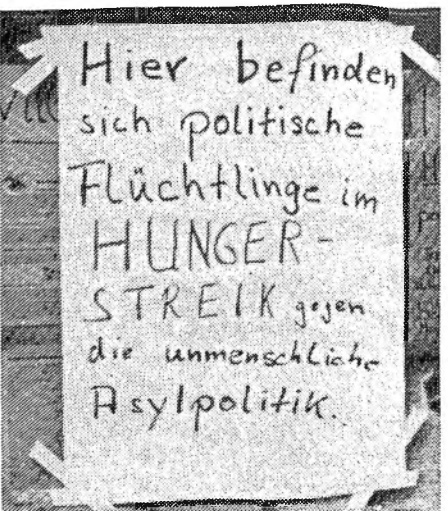 Hier befinden
sich politische
Flüchtlinge im
HUNGER-
STREIK gegen
die unmenschliche
Asylpolitik.